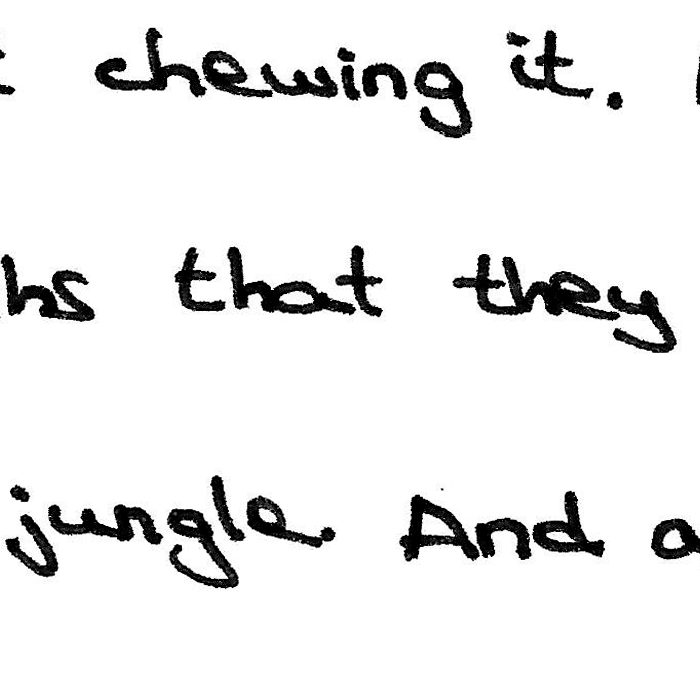 chewing it.
hs that they
jungle. And a